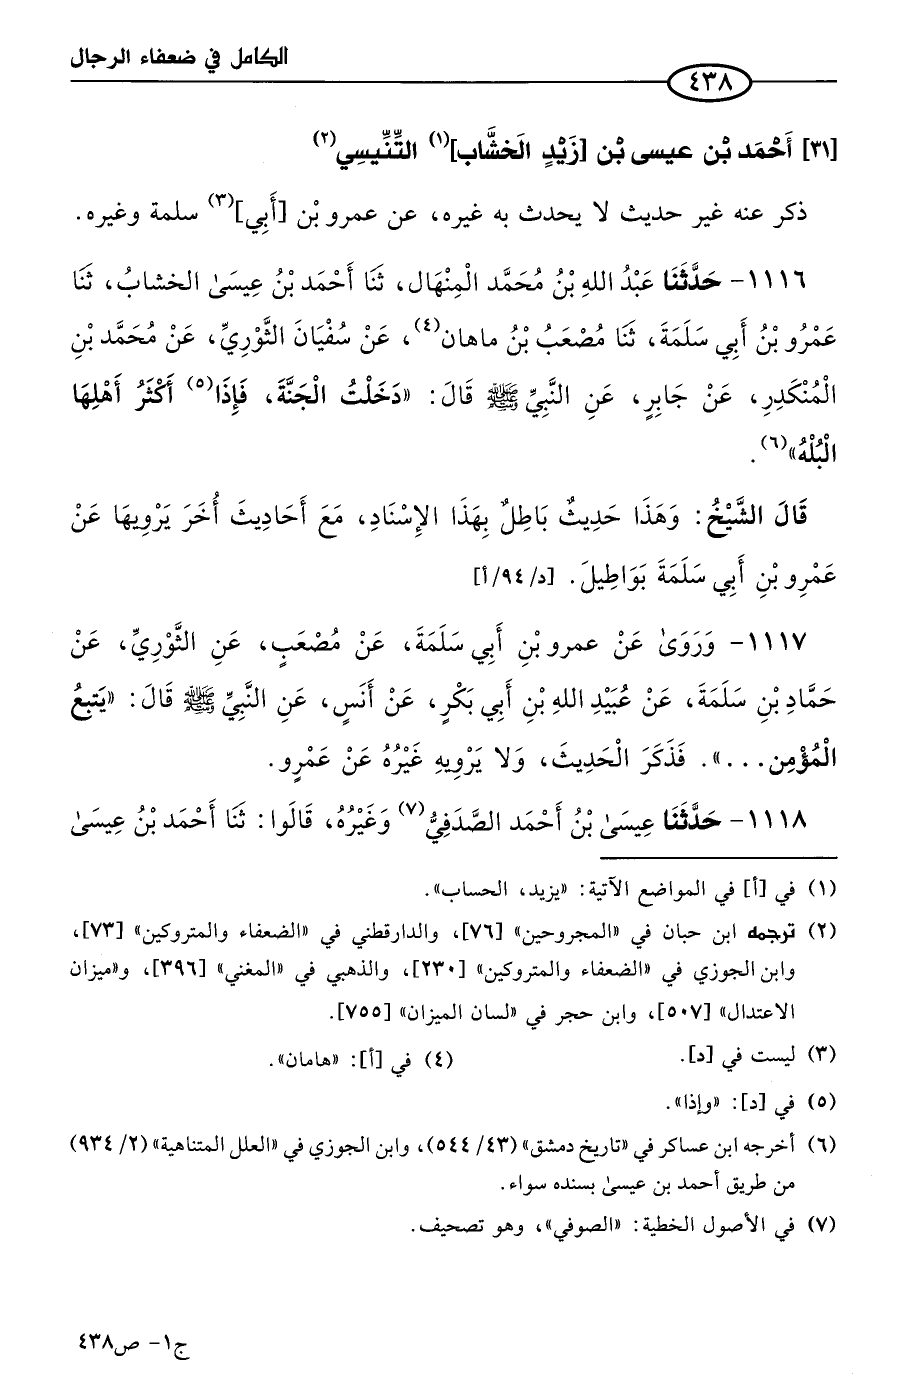 الكامل في ضعفاء الرجال
٤٣٨
[٣١] أَحْمَد بْن عيسى بْن [زَيْدٍ الخَشَّاب](١) التِّنِّيسِي(٢)
ذكر عنه غير حديث لا يحدث به غيره، عن عمرو بْن [أَبِي](٣) سلمة وغيره.
١١١٦- حَدَّثَنَا عَبْدُ اللهِ بْنُ مُحَمَّد الْمِنْهَال، ثَنَا أَحْمَد بْنُ عِيسَىٰ الخشابُ، ثَنَا
عَمْرُو بْنُ أَبِي سَلَمَةَ، ثَنا مُصْعَبُ بْنُ ماهان(٤)، عَنْ سُفْيَانَ الثَّوْرِيِّ، عَنْ مُحَمَّد بْنِ
الْمُنْكَدِرِ، عَنْ جَابِرٍ، عَنِ النَّبِيِّ ﷺ قَالَ: «دَخَلْتُ الْجَنَّةَ، فَإِذَا(٥) أَكْثَرُ أَهْلِهَا
الْبُلْهُ»(٦).
قَالَ الشَّيْخُ: وَهَذَا حَدِيثٌ بَاطِلٌ بِهَذَا الإِسْنَادِ، مَعَ أَحَادِيثَ أُخَرَ يَرْوِيهَا عَنْ
عَمْرِو بْنِ أَبِي سَلَمَةَ بَوَاطِيلَ. [د/٩٤/أ]
١١١٧- وَرَوَىٰ عَنْ عمرو بْنِ أَبِي سَلَمَةَ، عَنْ مُصْعَبٍ، عَنِ الثَّوْرِيِّ، عَنْ
حَمَّادِ بْنِ سَلَمَةَ، عَنْ عُبَيْدِ اللهِ بْنِ أَبِي بَكْرٍ، عَنْ أَنَسٍ، عَنِ النَّبِيِّ ﷺ قَالَ: «يَتبعُ
الْمُؤْمِن...». فَذَكَرَ الْحَدِيثَ، وَلا يَرْوِيهِ غَيْرُهُ عَنْ عَمْرٍو.
١١١٨- حَدَّثَنَا عِيسَىٰ بْنُ أَحْمَد الصَّدَفِيُّ(٧) وَغَيْرُهُ، قَالُوا: ثَنَا أَحْمَد بْنُ عِيسَىٰ
(١) في [أ] في المواضع الآتية: «يزيد، الحساب».
(٢) ترجمه ابن حبان في «المجروحين» [٧٦]، والدارقطني في «الضعفاء والمتروكين» [٧٣]،
وابن الجوزي في «الضعفاء والمتروكين» [٢٣٠]، والذهبي في «المغني» [٣٩٦]، و«ميزان
الاعتدال» [٥٠٧]، وابن حجر في «لسان الميزان» [٧٥٥].
(٣) ليست في [د]. (٤) في [أ]: «هامان».
(٥) في [د]: «وإذا».
(٦) أخرجه ابن عساكر في «تاريخ دمشق» (٤٣/ ٥٤٤)، وابن الجوزي في «العلل المتناهية» (٢/ ٩٣٤)
من طريق أحمد بن عيسىٰ بسنده سواء.
(٧) في الأصول الخطية: «الصوفي»، وهو تصحيف.
ج١- ص٤٣٨